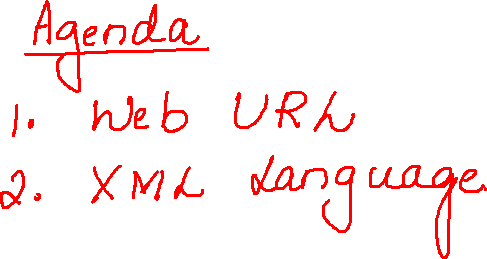 Agenda
1. Web URL
2. XML Language